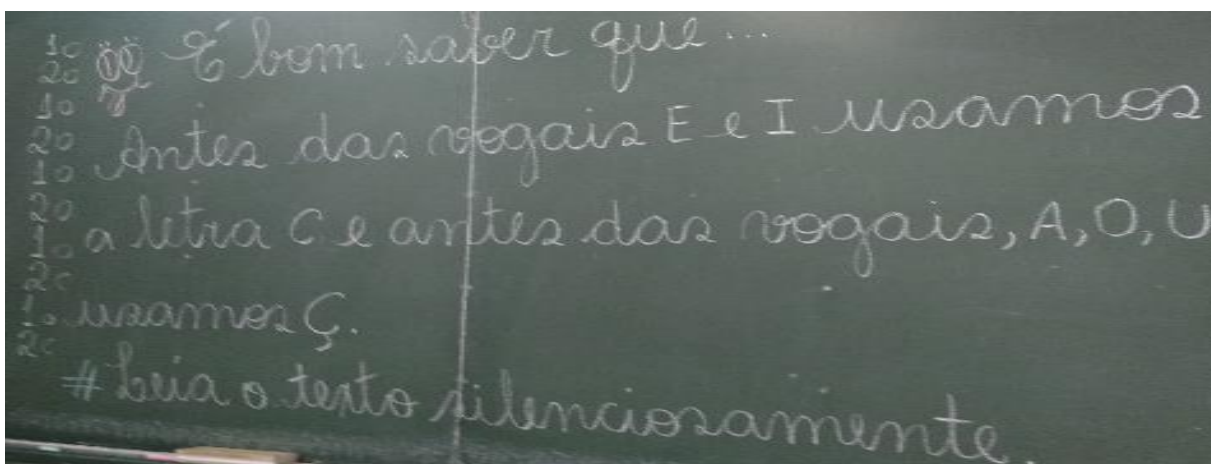 É bom saber que...
Antes das vogais E e I usamos
a letra C e antes das vogais, A, O, U
usamos Ç.
# Leia o texto silenciosamente.